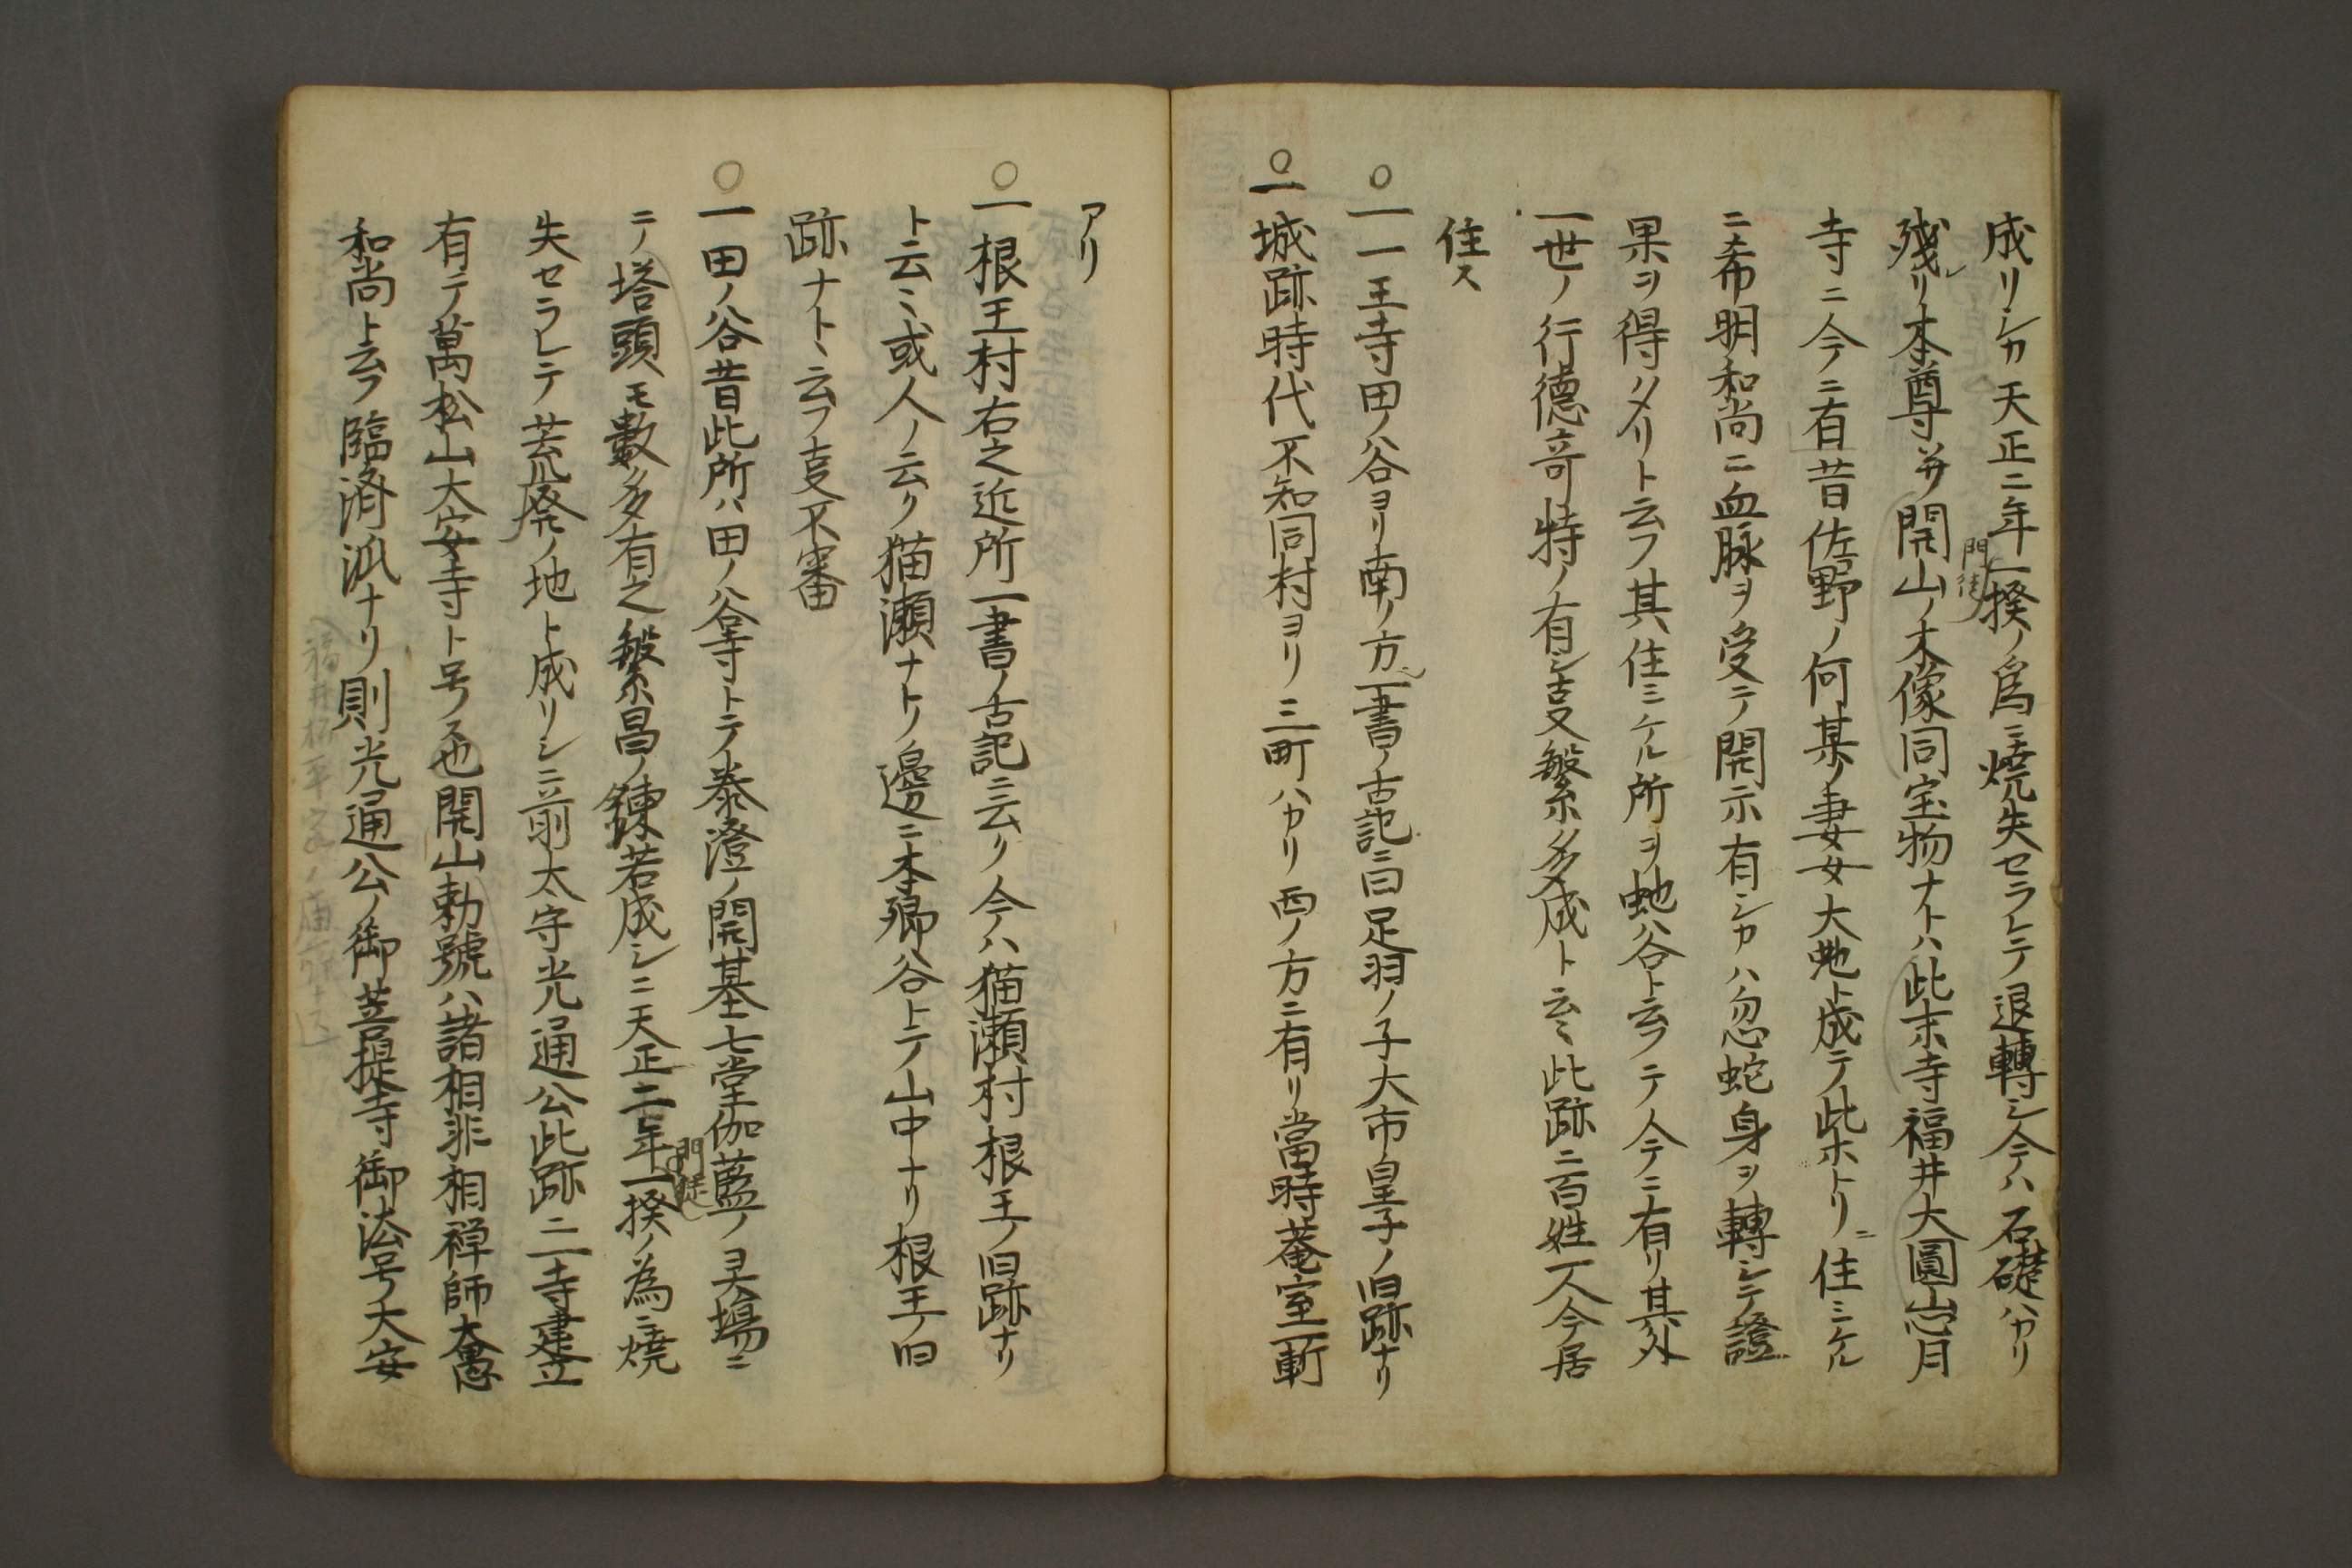 成リシカ天正二年一揆ノ為ニ焼失セラレテ退轉シ今ハ石礎ハカリ
門徒
残リ本尊并開山ノ木像同宝物ナトハ此末寺福井大圓山心月
寺ニ今ニ有昔佐野ノ何某ノ妻女大虵ト成テ此ホトリニ住ミケル
ニ希明和尚ニ血脉ヲ受テ開示有シカハ忽蛇身ヲ轉シテ證
果ヲ得タリト云フ其住ミケル所ヲ虵谷ト云フテ今ニ有リ其外
一世ノ行德竒特ノ有シ叓繁多成ト云〻此跡ニ百姓一人今居
住ス
○一一王寺田ノ谷ヨリ南ノ方一書ノ古記ニ曰足羽ノ子大市皇子ノ旧跡ナリ
○一城跡時代不知同村ヨリ三町ハカリ西ノ方ニ有リ當時菴室一軒
アリ
○一根王村右之近所一書ノ古記ニ云リ今ハ猫瀬村根王ノ旧跡ナリ
ト云〻或人ノ云リ猫瀬ナトノ邊ニ本郷谷トテ山中ナリ根王ノ旧
跡ナトヽ云フ叓不審
○一田ノ谷昔此所ハ田ノ谷寺トテ泰澄ノ開基七堂伽藍ノ灵場ニ
ニテ塔頭モ數多有之繁昌ノ錬若成シニ天正二年一揆ノ為ニ焼
門徒
失セラレテ荒廃ノ地ト成リシニ前太守光通公此跡ニ一寺建立
有テ萬松山大安寺ト号ス也開山勅號ハ諸相非相禅師大愚
和尚ト云フ臨済派ナリ則光通公ノ御菩提寺御法号大安